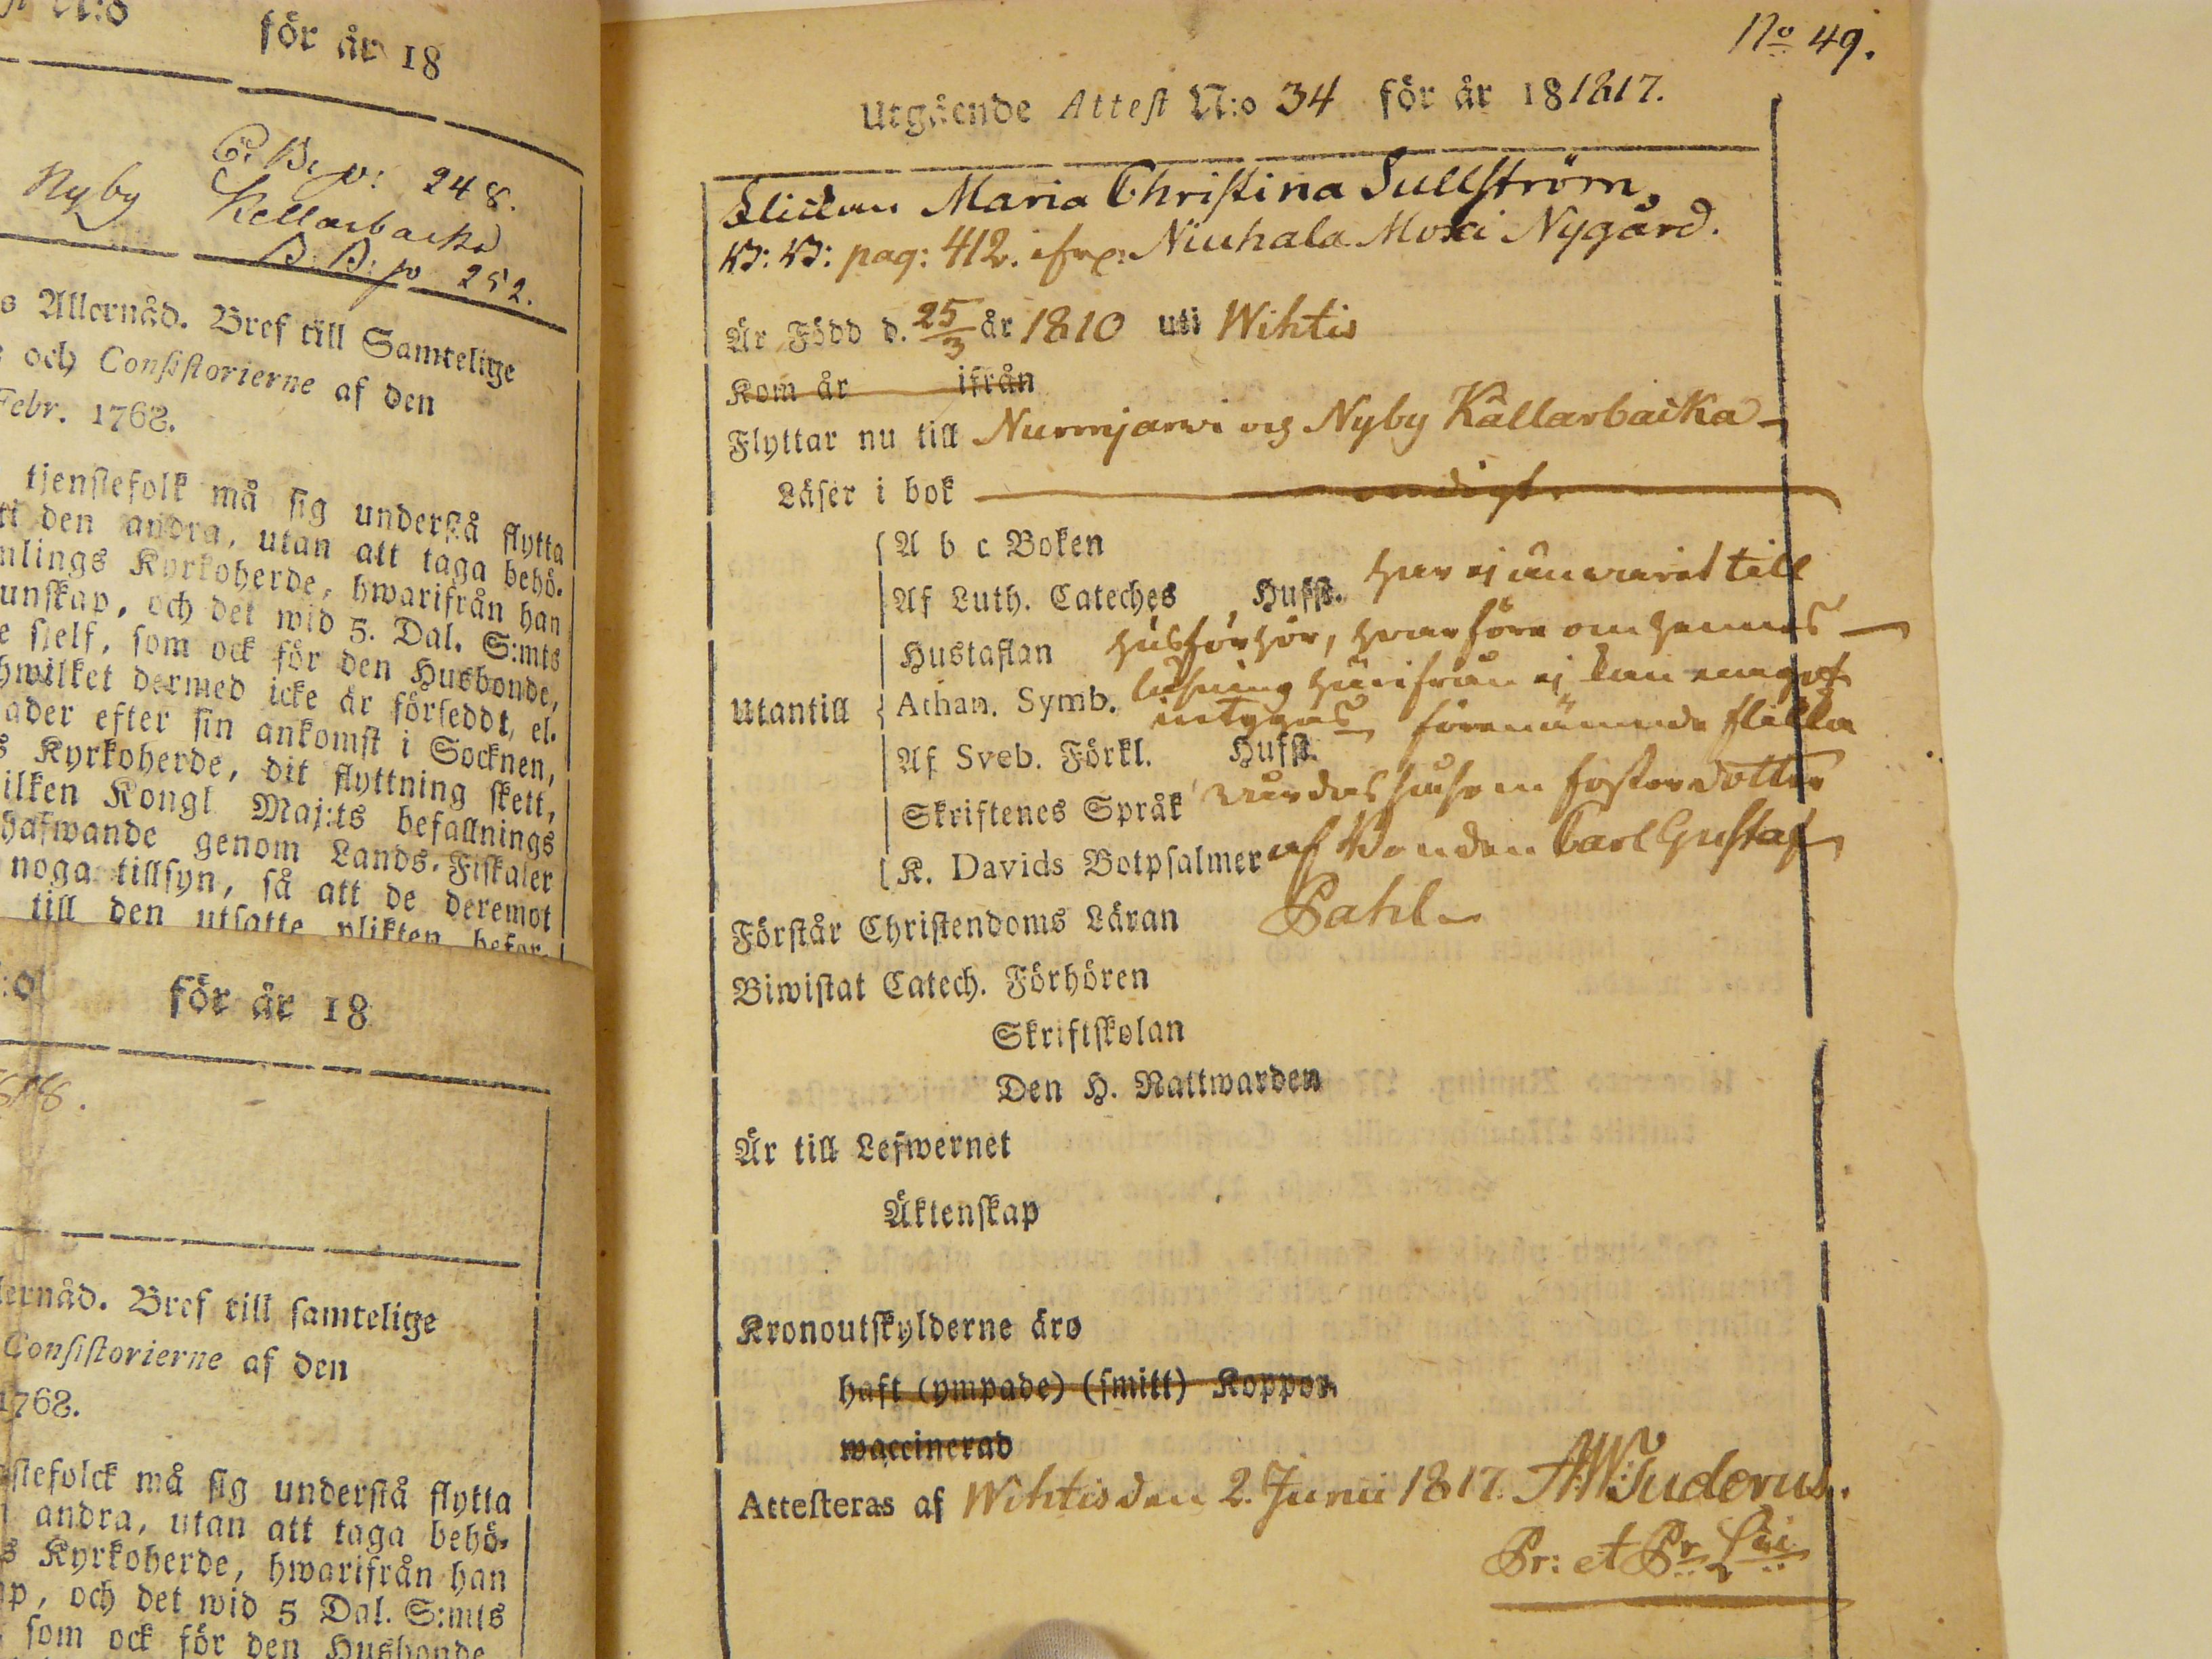 för år 18
C. B. p: 248.
Nyby Kellarbacka
B. B: p 252.
s Allernåd. Bref till Samtelige
och Consistorierne af den
Febr. 1768.
tjenstefolk må sig understå flytta
den andra, utan att taga behö-
mlings Kyrkoherde, hwarifrån han
unskap, och det wid 5. Dal. S:mts
e sjelf, som ock för den Husbonde,
hwilket dermed icke är försedd t, el-
ader efter sin ankomst i Socknen,
s Kyrkoherde, dit flyttning skett,
ilken Kongl Maj:ts befallnings
hafwande genom Lands-Fiskaler
noga tillsyn, så att de deremot
till den utsatte plikten befor-
för år 18
ernåd. Bref till samtelige
Consistorierne af den
1768.
stefolck må sig understå flytta
andra, utan att taga behö-
s Kyrkoherde, hwarifrån han
p, och det wid 5 Dal. S:mts
som ock för den Husbonde
No 49.
Utgående Attest N:o 34 för år 18 1817.
Flickan Maria Christina Sullström,
B: B: pag: 412. ifrån Niuhala Moxi Nygård.
Är Född d. 25/3 år 1810 uti Wihtis
Kom år ifrån
Flyttar nu till Nurmjarvi och Nyby Källarbacka
Läser i bok
A b c Boken
Af Luth. Cateches Hufst. har ej än warit till
Hustaflan husförhör, hvarföre om hennes
Utantill Athan. Symb. läsning härifrån ej kan något
intygas förenämnde flicka
Af Sveb. Förkl. Hufst.
Skriftenes Språk såsom fosterdotter
K. Davids Botpsalmer af Bonden Carl Gustaf
Förstår Christendoms Läran Pahl
Biwistat Catech. Förhören
Skriftskolan
Den H. Nattwarden
Är till Lefwernet
Äktenskap
Kronoutskylderne äro
haft (ympade) (smitt) Koppor
waccinerad
Attesteras af Wihtis den 2. Junii 1817. AW:Tuderus.
Pr: et Pr